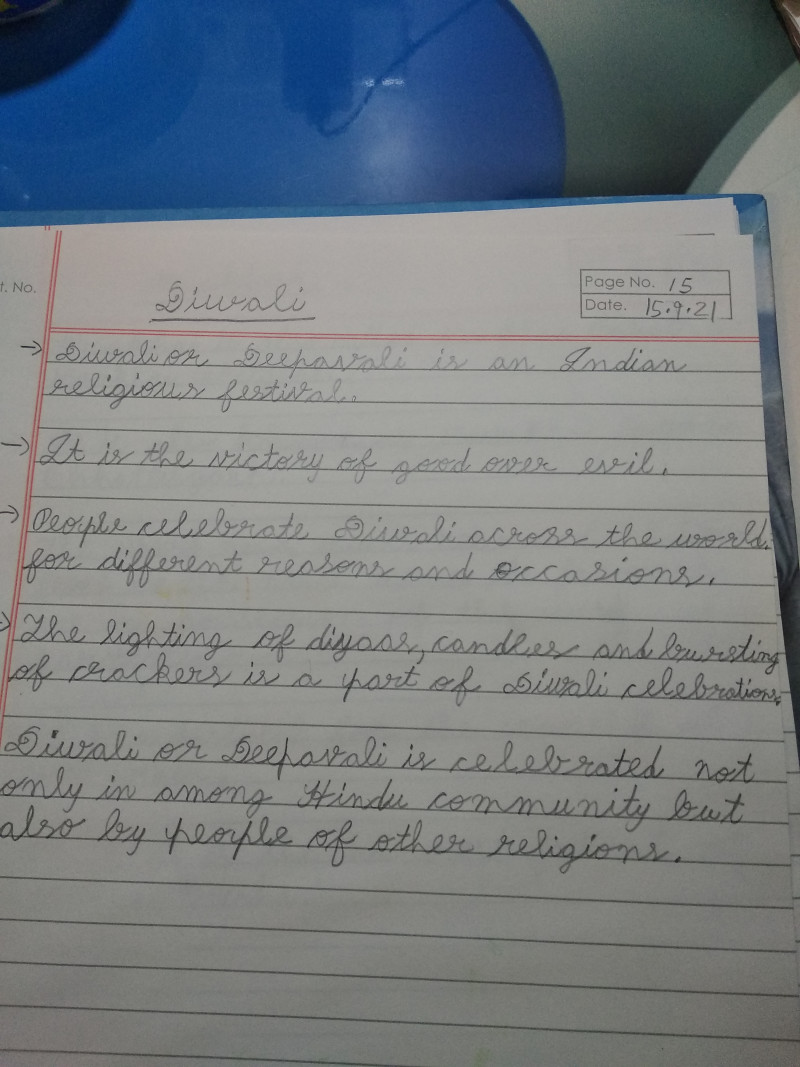 t. No.
Page No. 15
Diwali
Date. 15.9.21
→ Diwali or Deepavali is an Indian
religious festival.
→ It is the victory of good over evil.
→ People celebrate Diwali across the world.
for different reasons and occasions.
→ The lighting of diyass, candles and bursting
of crackers is a part of Diwali celebrations.
Diwali or Deepavali is celebrated not
only in among Hindu community but
also by people of other religions.